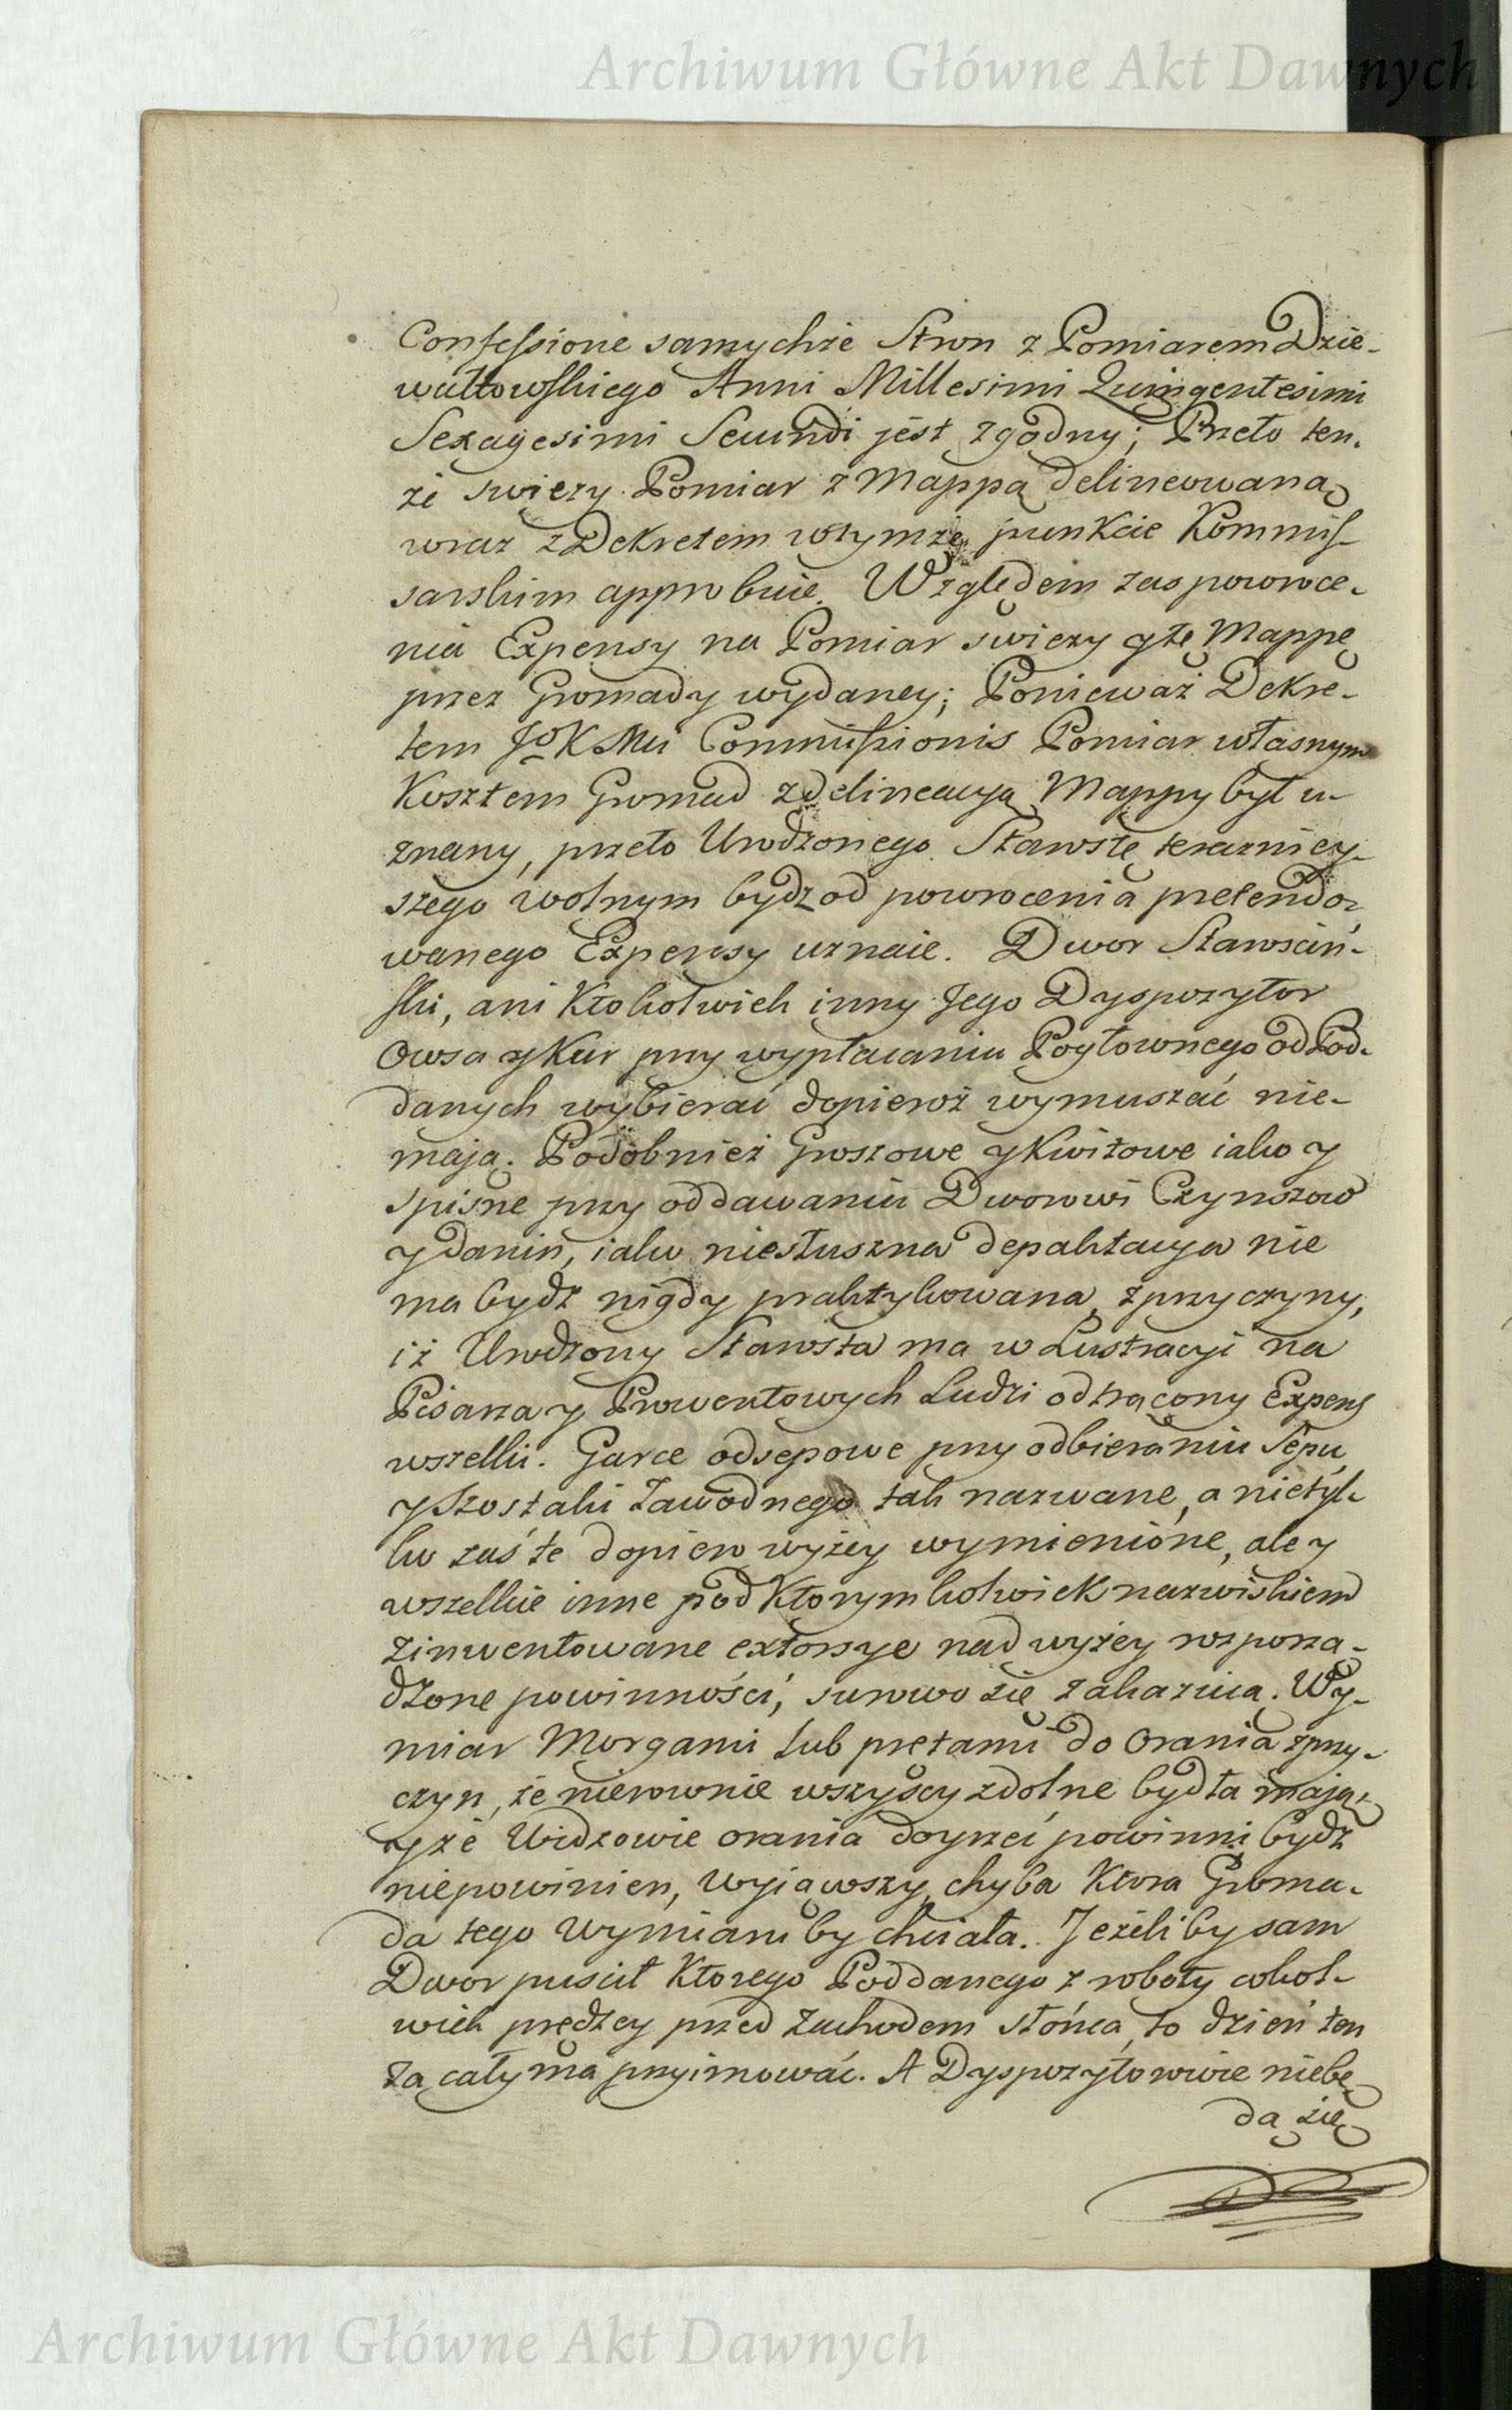 Archiwum Główne Akt Dawnych
Confessione samychże Stron z Pomiarem Dzie-
wałtowskiego Anni Millesimi Quingentesimi
Sexagesimi Secundi jest zgodny; Przeto ten-
że swieży Pomiar z Mappą delineowaną
wraz z Dekretem wtymże punkcie Kommis-
sarskim approbuie. Względem zas powroce-
nia Expensy na Pomiar swieży y tę Mappę
przez Gromady wydaney; Ponieważ Dekre-
tem Jo K Mci Commissionis Pomiar własnym
Kosztem Gromad z delineacyą Mappy był u-
znany, przeto Urodzonego Starostę teraźniey-
szego wolnym bydz od powrocenia pretendo-
wanego Expensy uznaie. Dwor Starościń-
ski, ani Ktokolwiek inny Jego Dyspozytor
Owsa y Kur przy wypłacaniu Pogłownego od Pod-
danych wybierać dopieroż wymuszać nie-
mają. Podobnież Groszowe y Kwitowe iako y
spisne przy oddawaniu Dworowi Czynszow
y danin, iako niesłuszna depaktacya nie
ma bydź nigdy praktykowana, z przyczyny,
iż Urodzony Starosta ma w Lustracyi na
Pisarza y Prowentowych Ludzi odtrącony Expens
wszelki. Garce odsepowe przy odbieraniu Sepu
y Szostaki Zawodnego tak nazwane, a nietyl-
ko zaś te dopiero wyżey wymienione, ale y
wszelkie inne pod Ktorymkolwiek nazwiskiem
zinwentowane extorsye nad wyżey rozporzą-
dzone powinności, surowo się zakazuią. Wy-
miar Morgami lub prętami do Orania z przy-
czyn, że nierownie wszyscy zdolne bydła mają,
y że Widzowie orania doyrzeć powinni bydź
niepowinien, wyiąwszy chyba Ktora Groma-
da tego wymiaru by chciała. Jeżeliby sam
Dwor puscił Ktorego Poddanego z roboty cokol-
wiek prędzey przed Zachodem słońca, to dzień ten
za cały ma przyimować. A Dyspozytorowie niebę-
dą się
Archiwum Główne Akt Dawnych